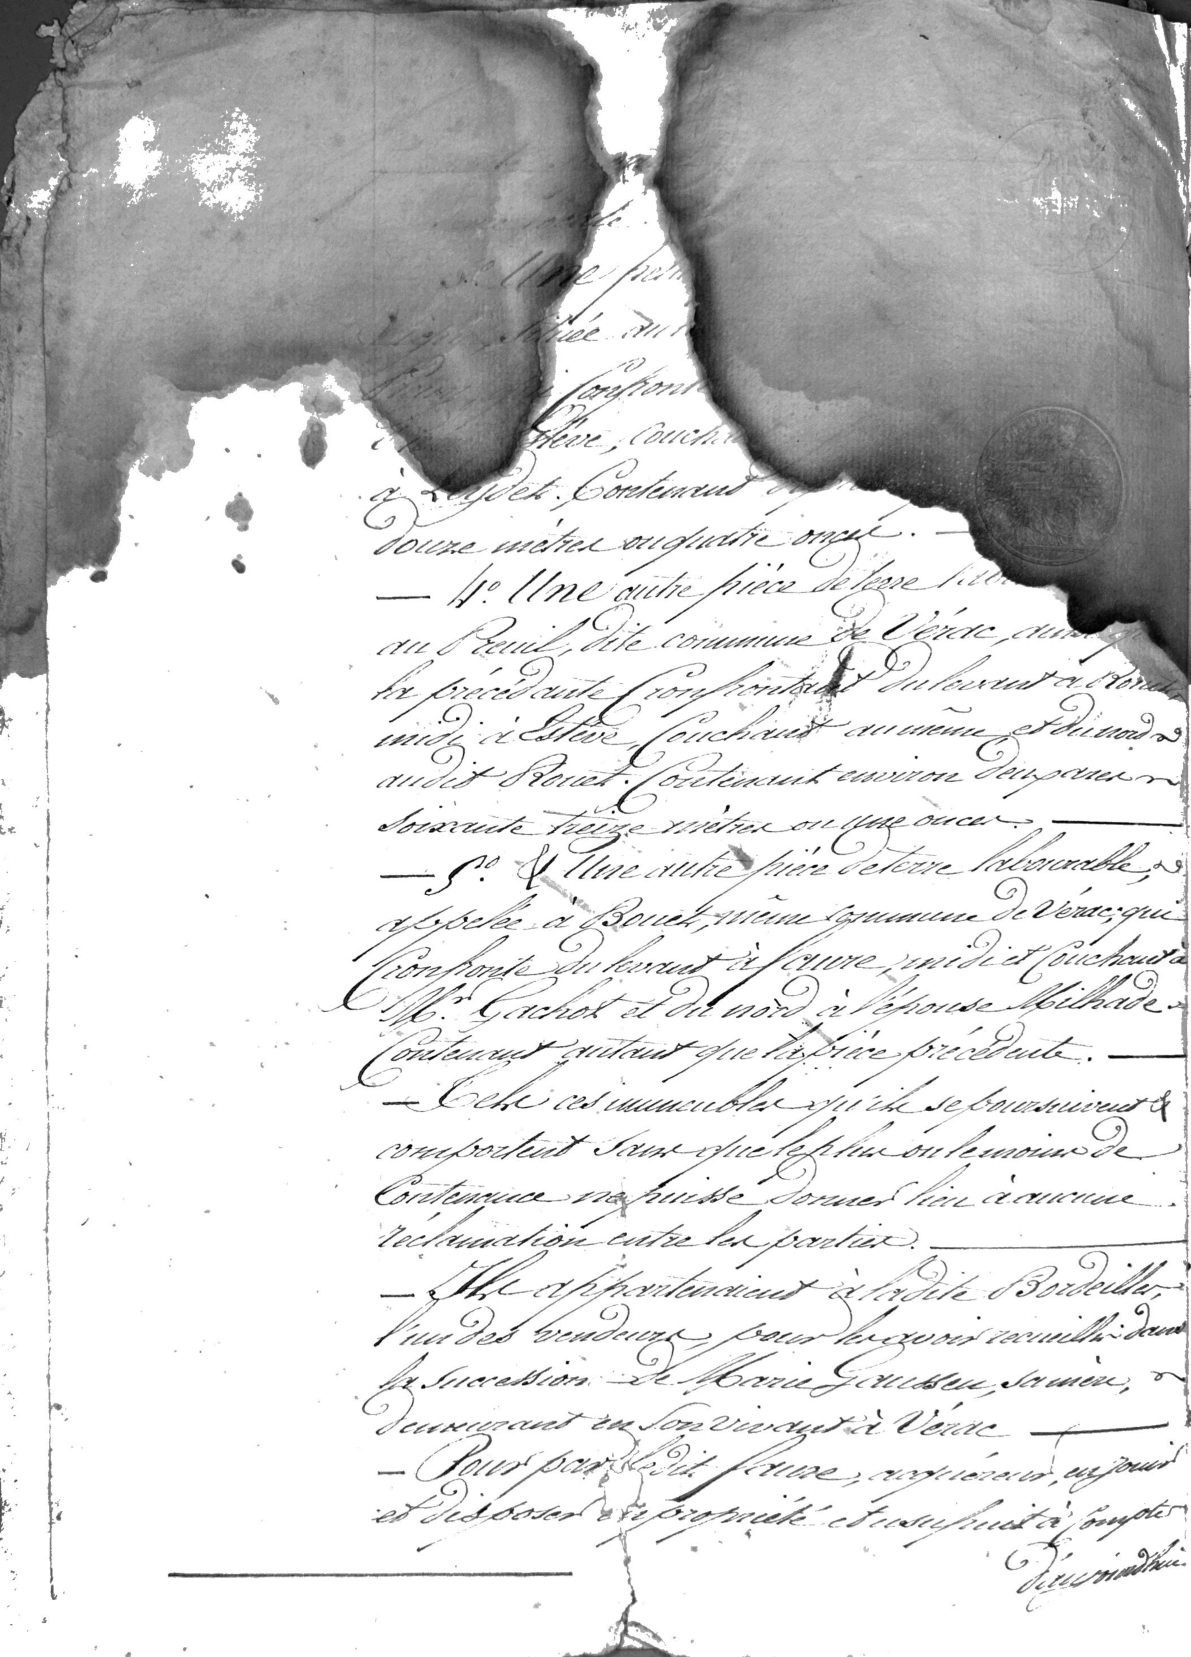 Une
située au
Confront
Estève, Couch
à Leydet. Contenant
douze mètres ou quatre onces. —
— 4º. Une autre pièce de terre
au Breuil, dite commune de Vérac,
la précédante Confrontant du levant à
midi à Estève, Couchant au même et du nord
audit Rouet. Contenant environ deux ares
soixante treize mètres ou une onces. —
— 5º. & Une autre pièce de terre labourable,
appelée à Bouet, même commune de Vérac, qui
Confronte du levant à faure, midi et Couchant à
Mr. Gachot et du nord à l'épouse Milhade
Contenant autant que la pièce précédente. —
— Tels ces immeubles qu'ils se poursuivent &
comportent sans que le plus ou le moins de
Contenance ne puisse donner lieu à aucune
réclamation entre les parties. —
— Ils appartenaient à ladite Bordeilles,
l'un des vendeurs, pour les avoir recueillis dans
la succession de Marie Gaussen, sa mère,
demeurant en son vivant à Vérac —
— Pour par ledit faure, acquéreur, en jouir
et disposer en propriété et usufruit à compter
d'aujourd'hui